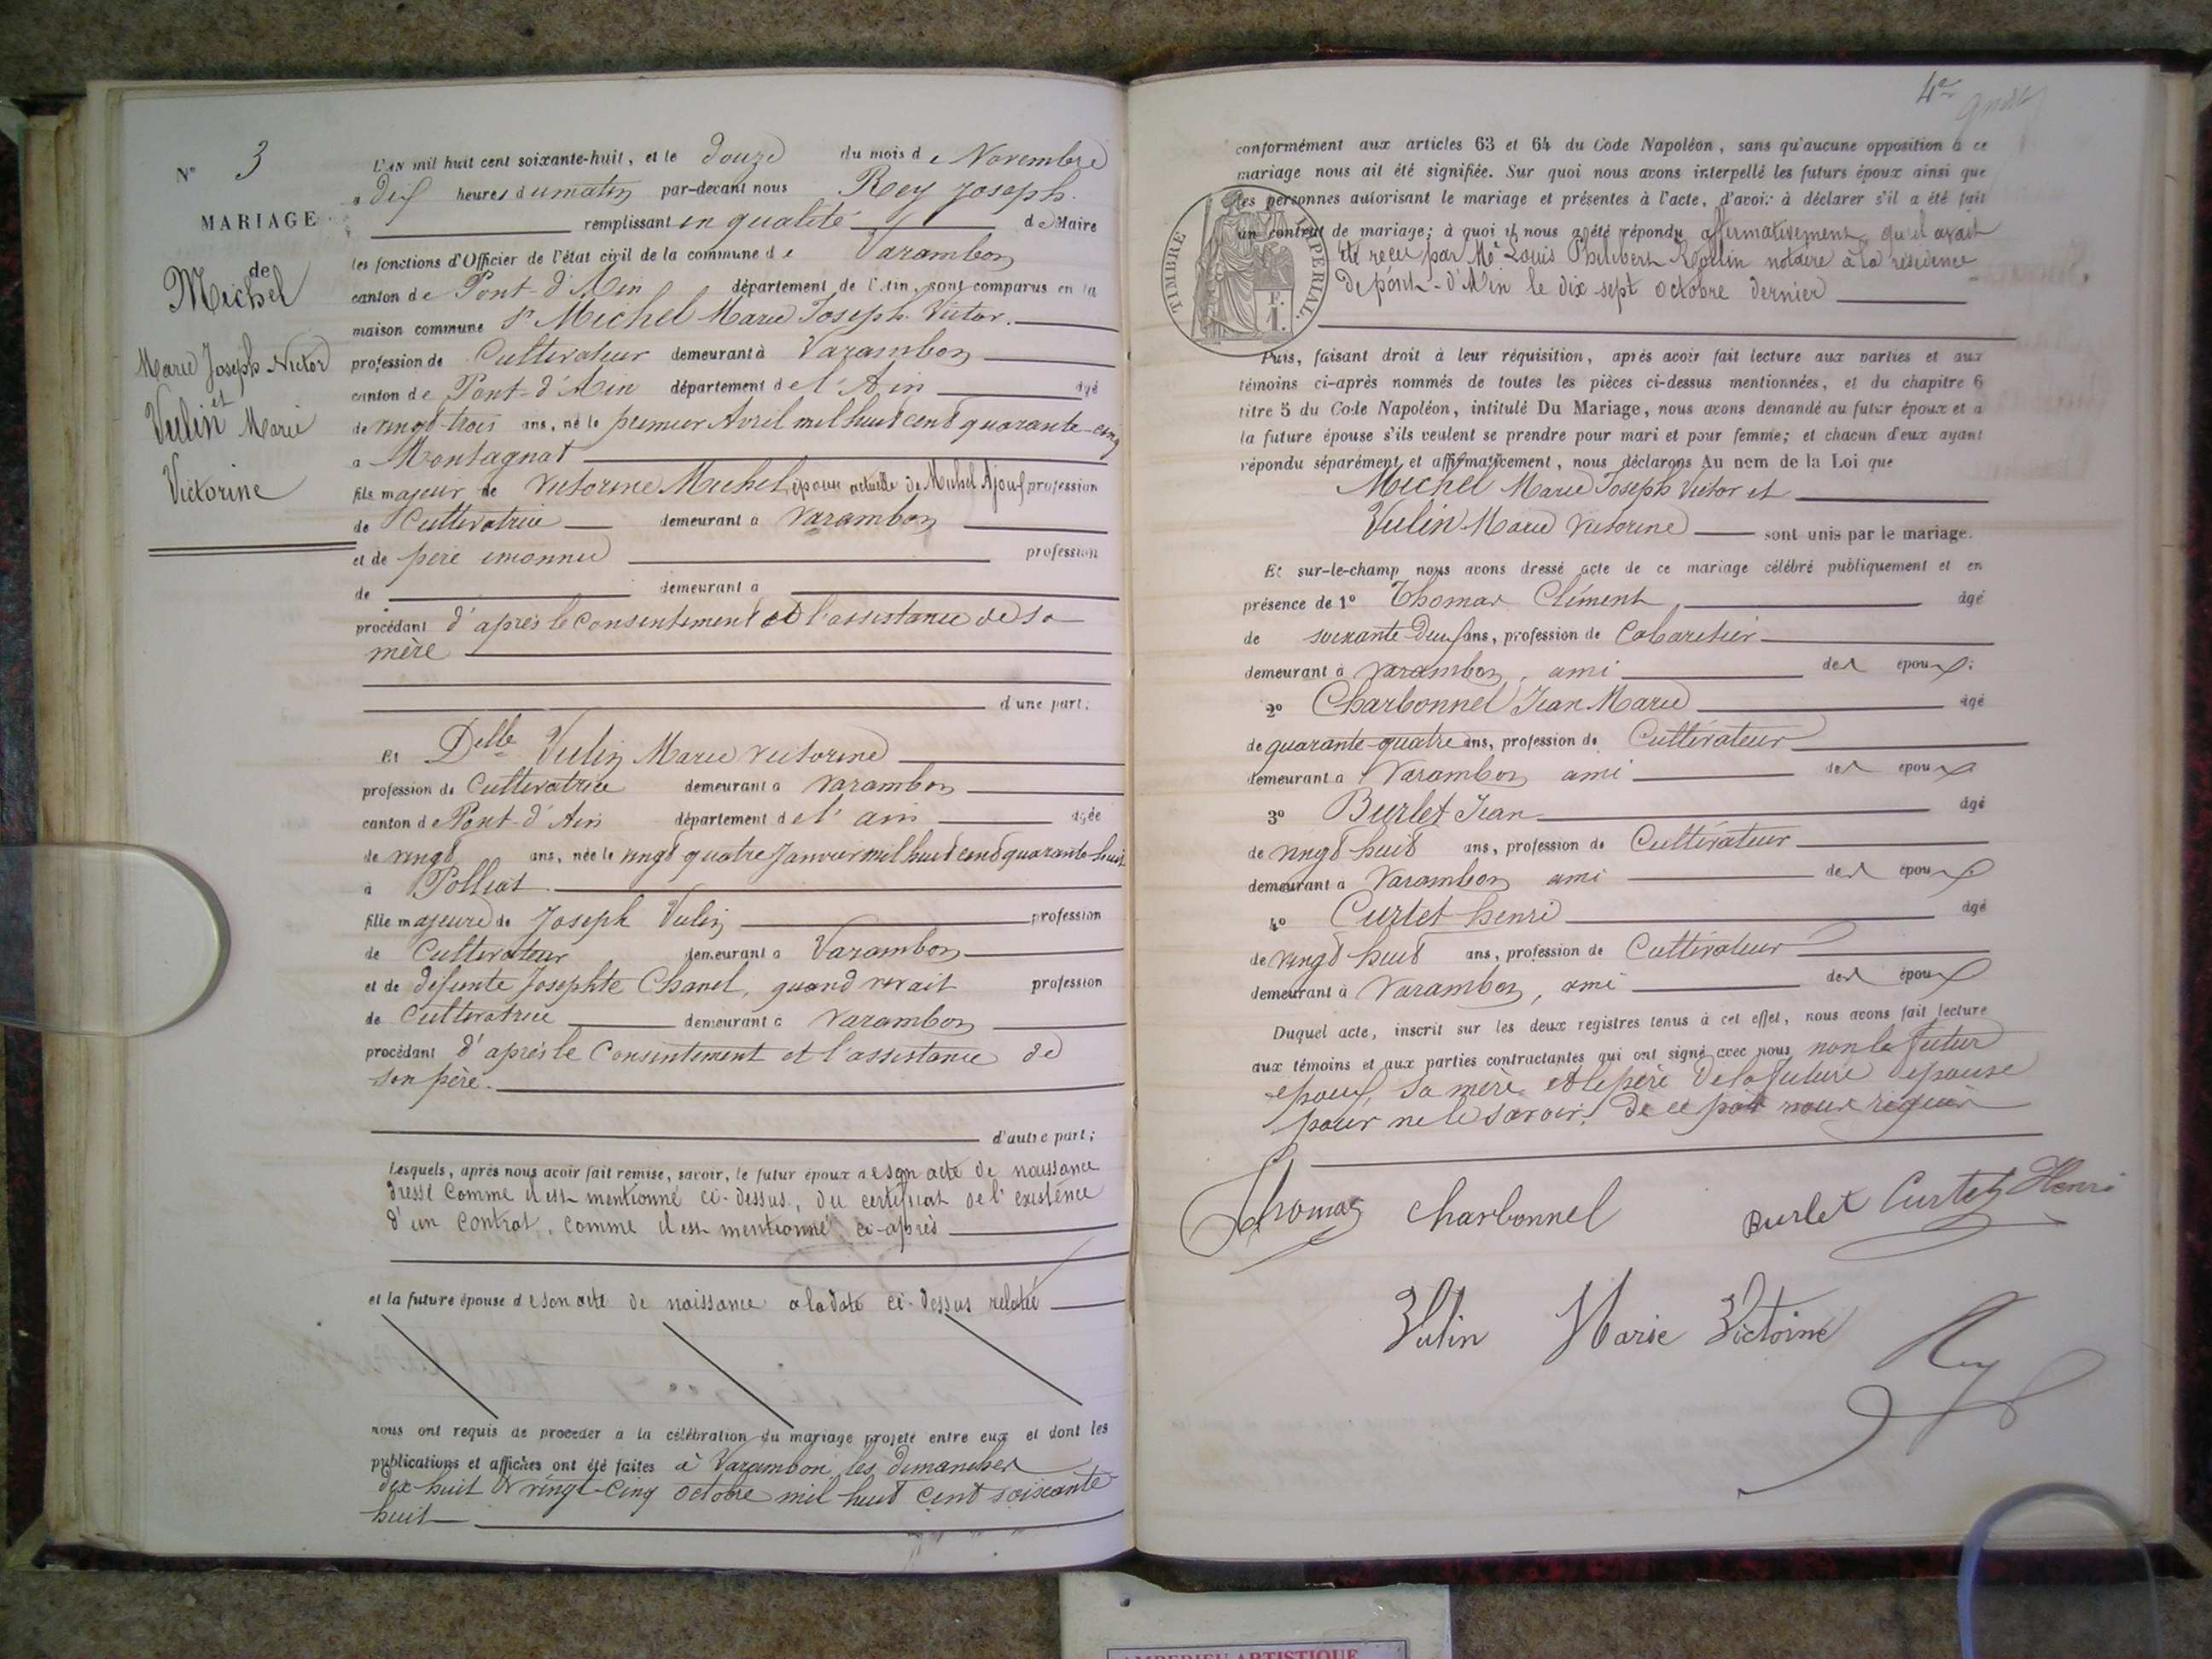 N° 3
MARIAGE
de
Michel
Marie Joseph Victor
et
Vulin Marie
Victorine
L'AN mil huit cent soixante-huit, et le douze du mois de Novembre
à dix heures du matin par-devant nous Rey Joseph.
remplissant en qualité de Maire
les fonctions d'Officier de l'état civil de la commune de Varambon
canton de Pont-d'Ain département de l'Ain, sont comparus en la
maison commune Sr Michel Marie Joseph Victor.
profession de Cultivateur demeurant à Varambon
canton de Pont-d'Ain département de l'Ain âgé
de vingt-trois ans, né le premier Avril mil huit cent quarante-cinq
à Montagnat
fils majeur de Victorine Michel, épouse actuelle de Michel profession
de Cultivatrice demeurant à Varambon
et de père inconnu profession
de demeurant à
procédant d'après le consentement et l'assistance de sa
mère
d'une part;
Et Delle Vulin Marie Victorine
profession de Cultivatrice demeurant à Varambon
canton de Pont-d'Ain département de l'ain âgée
de vingt ans, née le vingt quatre Janvier mil huit cent quarante-huit
à Polliat
fille majeure de Joseph Vulin profession
de Cultivateur demeurant à Varambon
et de défunte Josephte Chanel, quand vivait profession
de Cultivatrice demeurant à Varambon
procédant d'après le Consentement et l'assistance de
son père.
d'autre part;
Lesquels, après nous avoir fait remise, savoir, le futur époux de son acte de naissance
dressé comme il est mentionné ci-dessus, du certificat de l'existence
d'un contrat, comme il est mentionné ci-après
et la future épouse de son acte de naissance à la date ci-dessus relatée
nous ont requis de procéder à la célébration du mariage projeté entre eux et dont les
publications et affiches ont été faites à Varambon les dimanches
dix-huit & vingt-cinq octobre mil huit cent soixante
huit
4e
conformément aux articles 63 et 64 du Code Napoléon, sans qu'aucune opposition à ce
mariage nous ait été signifiée. Sur quoi nous avons interpellé les futurs époux ainsi que
les personnes autorisant le mariage et présentes à l'acte, d'avoir à déclarer s'il a été fait
un contrat de mariage; à quoi il nous a été répondu affirmativement, qu'il avait
été reçu par Me Louis Philibert notaire à la résidence
de pont-d'Ain le dix sept octobre dernier
TIMBRE IMPERIAL
F.
1.
Puis, faisant droit à leur réquisition, après avoir fait lecture aux parties et aux
témoins ci-après nommés de toutes les pièces ci-dessus mentionnées, et du chapitre 6
titre 5 du Code Napoléon, intitulé Du Mariage, nous avons demandé au futur époux et à
la future épouse s'ils veulent se prendre pour mari et pour femme; et chacun d'eux ayant
répondu séparément et affirmativement, nous déclarons Au nom de la Loi que
Michel Marie Joseph Victor et
Vulin Marie Victorine sont unis par le mariage.
Et sur-le-champ nous avons dressé acte de ce mariage célébré publiquement et en
présence de 1° Thomas Clément âgé
de soixante-deux ans, profession de Cabaretier
demeurant à Varambon, ami des époux;
2° Charbonnel Jean Marie âgé
de quarante-quatre ans, profession de Cultivateur
demeurant à Varambon ami des époux
3° Burlet Jean âgé
de vingt huit ans, profession de Cultivateur
demeurant à Varambon ami des époux
4° Curtet henri âgé
de vingt huit ans, profession de Cultivateur
demeurant à Varambon, ami des époux
Duquel acte, inscrit sur les deux registres tenus à cet effet, nous avons fait lecture
aux témoins et aux parties contractantes qui ont signé avec nous non le futur
époux, sa mère et le père de la future épouse
pour ne le savoir, de ce par nous requis
Thomas Charbonnel Burlet Curtet Henri
Vulin Marie Victoine
Rey
AMBERIEU ARTISTIQUE